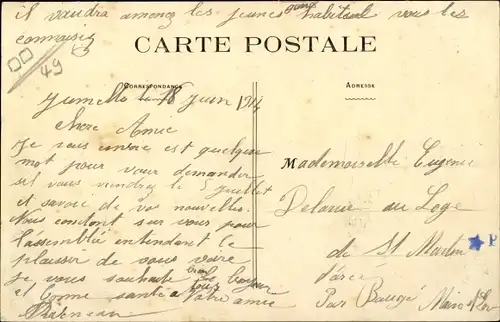 il vaudra amenez les jeunes gens habitant vous les
connaisiez
49
CARTE POSTALE
CORRESPONDANCE
ADRESSE
Jumelle le 18 Juin 1914
Chere Amie
Je vous envoie est quelque
mot pour vour demander
sil vous viendrez le 5 Juillet
et savoir de vos nouvelles.
Nous contont sur vous pour
l'assemblée entendant le
plaisser de vous voire
je vous souhait bien le bonjour
et bonne santée a tous Votre amie
Mademoiselle Eugenie
Delaune au Loge
de St Martin
d'arcé
Par Baugé Maine et Loire